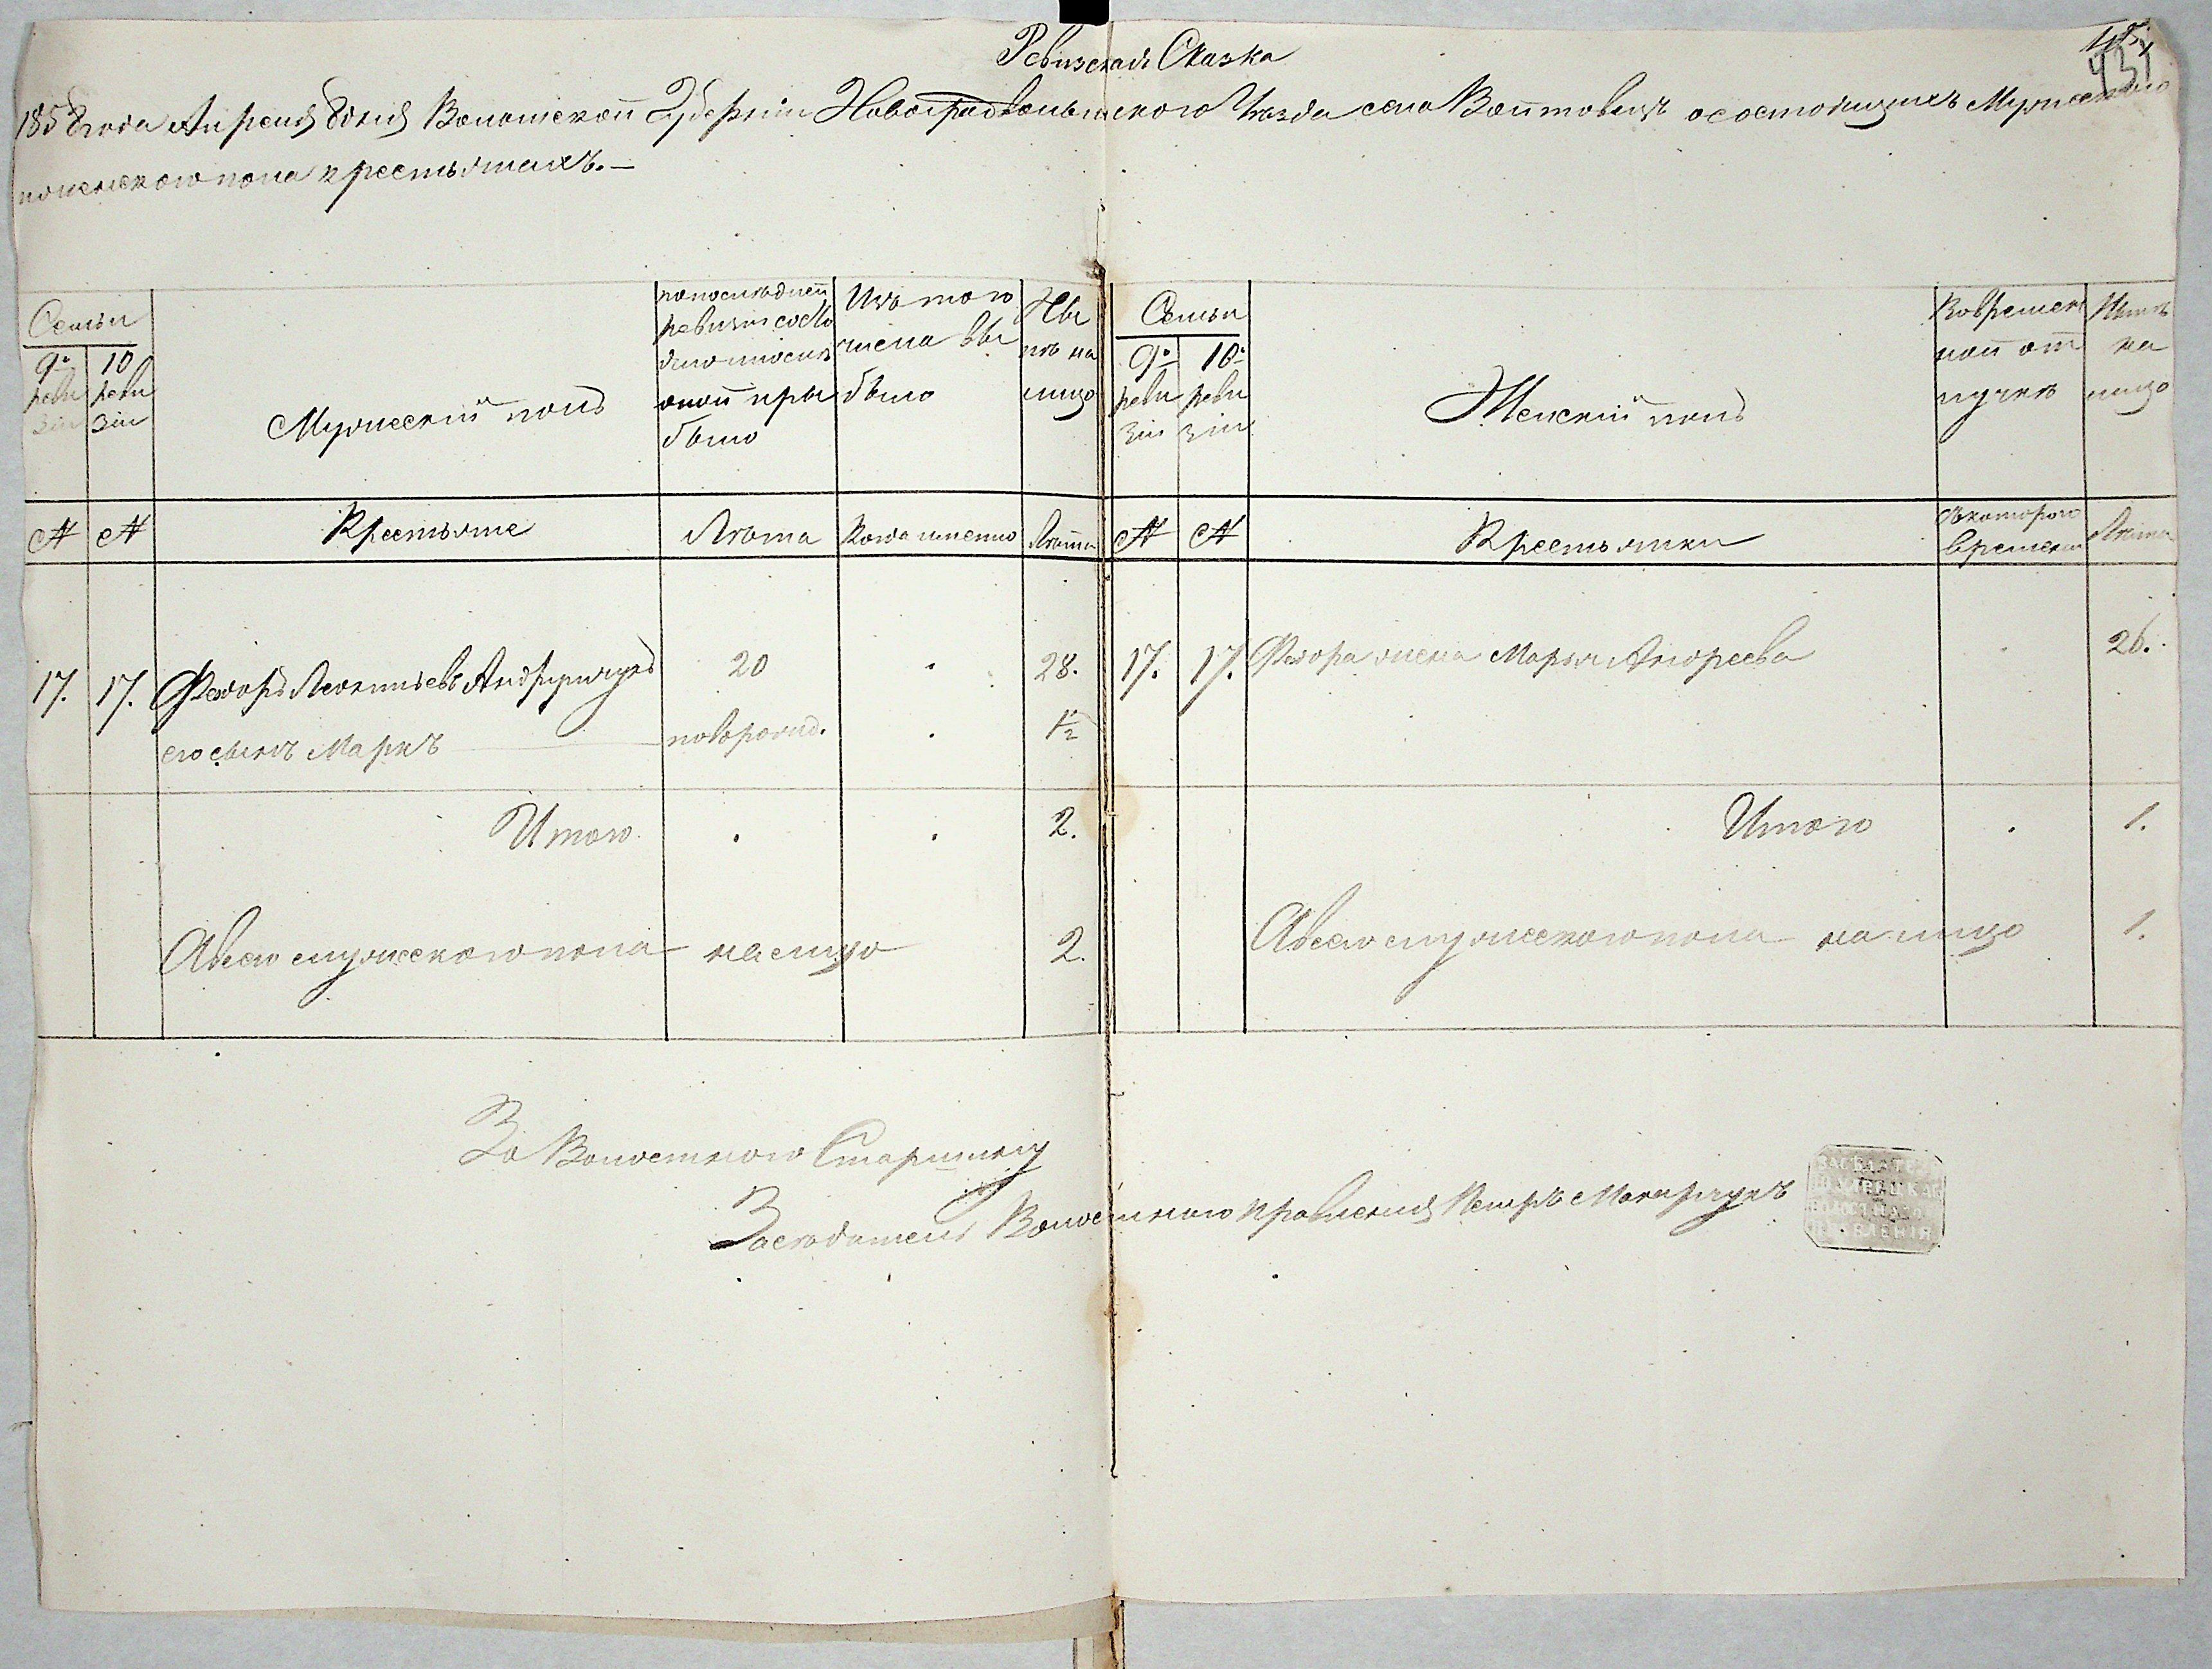 Ревизская Сказка
431
1858 года Апреля 8 дня Волынской Губерніи Новоградволынского Уезда села Войтовецъ о состоящихъ Мужеского
и женского пола крестьянахъ.—
Семьи
9я ревизіи
10 ревизіи
Мужеский полъ
по последней ревизіи состояло и после оной прибыло
Изъ того числа выбыло
Ныне на лицо
Семьи
9я ревизіи
10я ревизіи
Женский полъ
Во временной отлучке
Ныне на лицо
№ № Крестьяне Лѣта Когда именно Лѣта № № Крестьянки Съ которого времени Лѣта
17. 17. Федоръ Леонтьевъ 20 28. 17. 17. Федора жена Марья Андреева 26.
его сынъ Маркъ новорожд. 1/2
Итого 2. Итого 1.
А всего мужеского пола на лицо 2. А всего мужеского пола на лицо 1.
За Волостного Старшину
Заседатель Волостного правления Петръ Макарчукъ
ЗАСЕДАТЕЛЬ
ВОЛОСТНАГО
ПРАВЛЕНІЯ